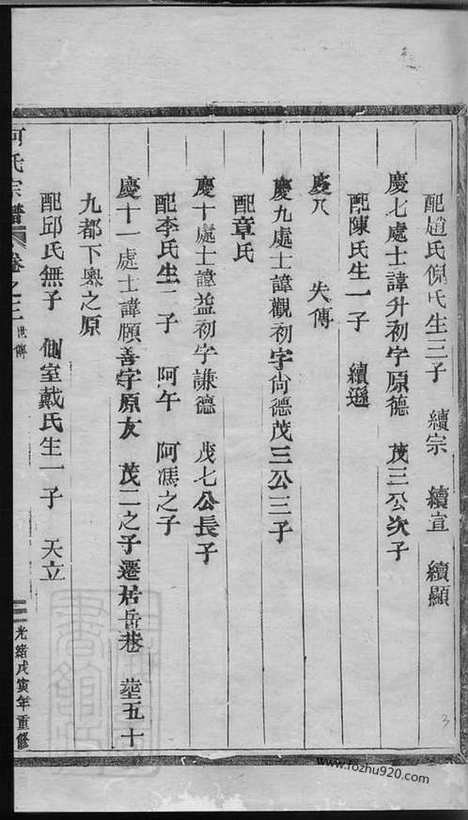 配趙氏倪氏生三子　續宗　續宣　續顯
慶七處士諱升初字原德　茂三公次子
配陳氏生一子　續遜
慶八　失傳
慶九處士諱觀初字尚德茂三公三子
配章氏
慶十處士諱益初字謙德　茂七公長子
配李氏生二子　阿午　阿馮之子
慶十一處士諱願善字原友　茂二之子遷居岳巷　葬五十
九都下奧之原
配邱氏無子　側室戴氏生一子　天立
何氏宗譜　卷之二　世傳
光緒戊寅年重修
3
www.fozhu920.com